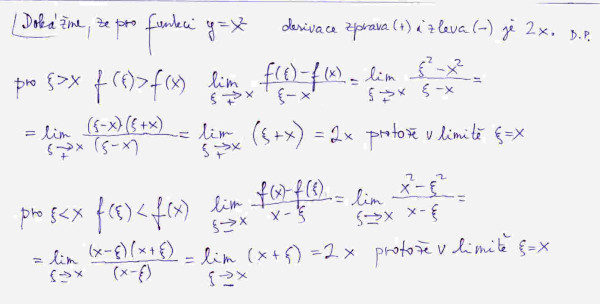 Dokažme, že pro funkci y=x² derivace zprava (+) i zleva (−) je 2x. D.P.
pro ξ>x f(ξ)>f(x) lim_{ξ→₊x} (f(ξ)−f(x))/(ξ−x) = lim_{ξ→₊x} (ξ²−x²)/(ξ−x) =
= lim_{ξ→₊x} ((ξ−x)(ξ+x))/((ξ−x)) = lim_{ξ→₊x} (ξ+x) = 2x protože v limitě ξ=x
pro ξ<x f(ξ)<f(x) lim_{ξ→₋x} (f(x)−f(ξ))/(x−ξ) = lim_{ξ→₋x} (x²−ξ²)/(x−ξ) =
= lim_{ξ→₋x} ((x−ξ)(x+ξ))/((x−ξ)) = lim_{ξ→₋x} (x+ξ) = 2x protože v limitě ξ=x